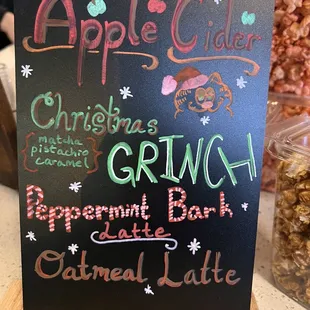 Apple Cider
Christmas
matcha
pistachio
caramel
GRINCH
Peppermint Bark
Latte
Oatmeal Latte